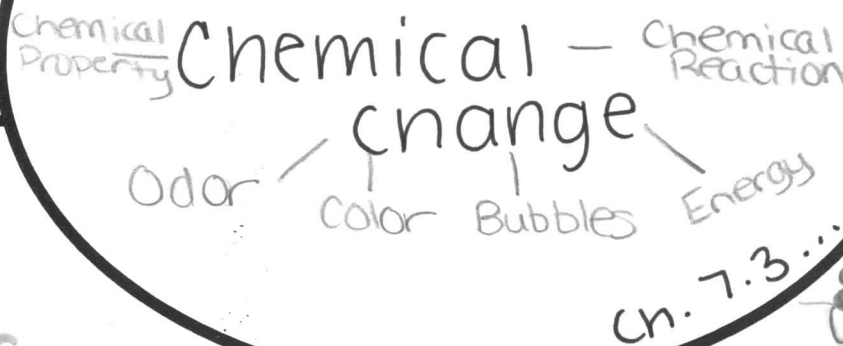 Chemical Property
Chemical change
Chemical Reaction
Odor
Color
Bubbles
Energy
Ch. 7.3...